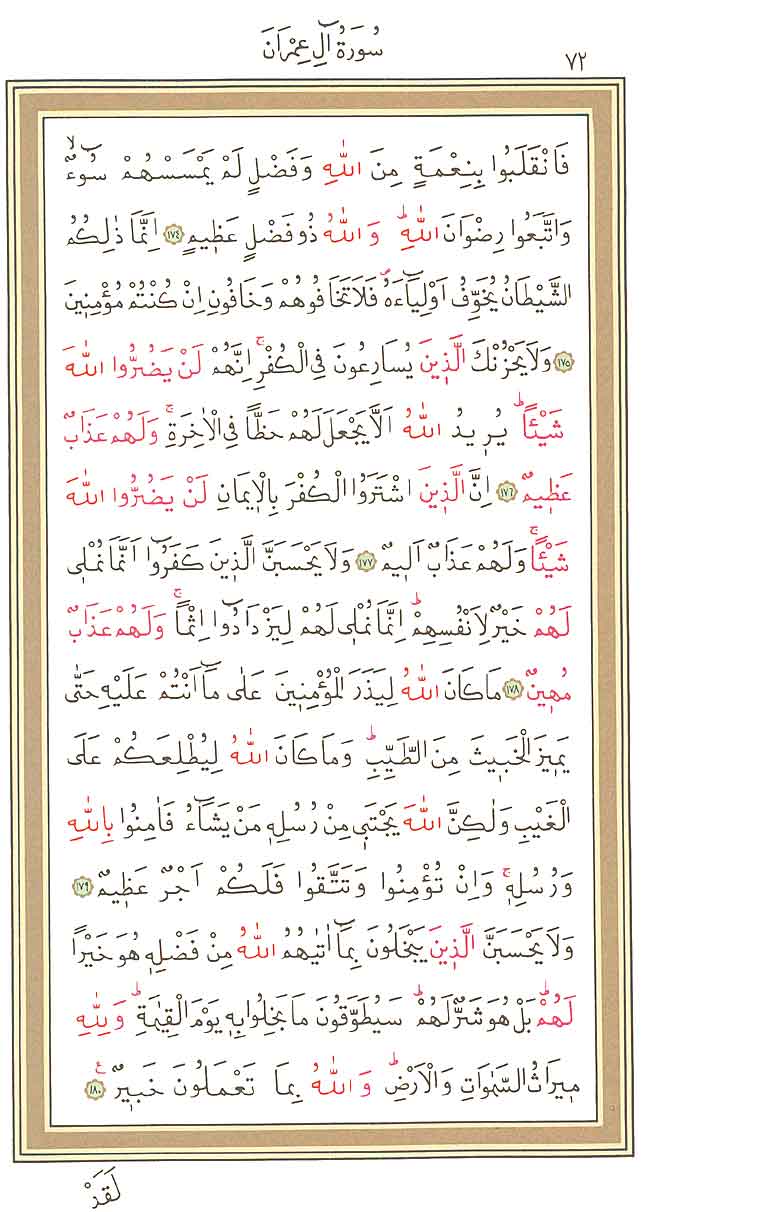 سُورَةُ اٰلِ عِمْرَانَ ٧٢
فَانْقَلَبُوا بِنِعْمَةٍ مِنَ اللّٰهِ وَفَضْلٍ لَمْ يَمْسَسْهُمْ سُٓوءٌۙ
وَاتَّبَعُوا رِضْوَانَ اللّٰهِۜ وَاللّٰهُ ذُو فَضْلٍ عَظ۪يمٍ ﴿١٧٤﴾ اِنَّمَا ذٰلِكُمُ
الشَّيْطَانُ يُخَوِّفُ اَوْلِيَٓاءَهُۖ فَلَا تَخَافُوهُمْ وَخَافُونِ اِنْ كُنْتُمْ مُؤْمِن۪ينَ
﴿١٧٥﴾ وَلَا يَحْزُنْكَ الَّذ۪ينَ يُسَارِعُونَ فِي الْكُفْرِۚ اِنَّهُمْ لَنْ يَضُرُّوا اللّٰهَ
شَيْـًٔاۜ يُر۪يدُ اللّٰهُ اَلَّا يَجْعَلَ لَهُمْ حَظًّا فِي الْاٰخِرَةِۚ وَلَهُمْ عَذَابٌ
عَظ۪يمٌ ﴿١٧٦﴾ اِنَّ الَّذ۪ينَ اشْتَرَوُا الْكُفْرَ بِالْا۪يمَانِ لَنْ يَضُرُّوا اللّٰهَ
شَيْـًٔاۚ وَلَهُمْ عَذَابٌ اَل۪يمٌ ﴿١٧٧﴾ وَلَا يَحْسَبَنَّ الَّذ۪ينَ كَفَرُٓوا اَنَّمَا نُمْل۪ي
لَهُمْ خَيْرٌ لِاَنْفُسِهِمْۜ اِنَّمَا نُمْل۪ي لَهُمْ لِيَزْدَادُٓوا اِثْمًاۚ وَلَهُمْ عَذَابٌ
مُه۪ينٌ ﴿١٧٨﴾ مَا كَانَ اللّٰهُ لِيَذَرَ الْمُؤْمِن۪ينَ عَلٰى مَٓا اَنْتُمْ عَلَيْهِ حَتّٰى
يَم۪يزَ الْخَب۪يثَ مِنَ الطَّيِّبِۜ وَمَا كَانَ اللّٰهُ لِيُطْلِعَكُمْ عَلَى
الْغَيْبِ وَلٰكِنَّ اللّٰهَ يَجْتَب۪ي مِنْ رُسُلِه۪ مَنْ يَشَٓاءُ فَاٰمِنُوا بِاللّٰهِ
وَرُسُلِه۪ۚ وَاِنْ تُؤْمِنُوا وَتَتَّقُوا فَلَكُمْ اَجْرٌ عَظ۪يمٌ ﴿١٧٩﴾
وَلَا يَحْسَبَنَّ الَّذ۪ينَ يَبْخَلُونَ بِمَٓا اٰتٰيهُمُ اللّٰهُ مِنْ فَضْلِه۪ هُوَ خَيْرًا
لَهُمْۜ بَلْ هُوَ شَرٌّ لَهُمْۜ سَيُطَوَّقُونَ مَا بَخِلُوا بِه۪ يَوْمَ الْقِيٰمَةِۜ وَلِلّٰهِ
م۪يرَاثُ السَّمٰوَاتِ وَالْاَرْضِۜ وَاللّٰهُ بِمَا تَعْمَلُونَ خَب۪يرٌ۟ ﴿١٨٠﴾
لَقَدْ